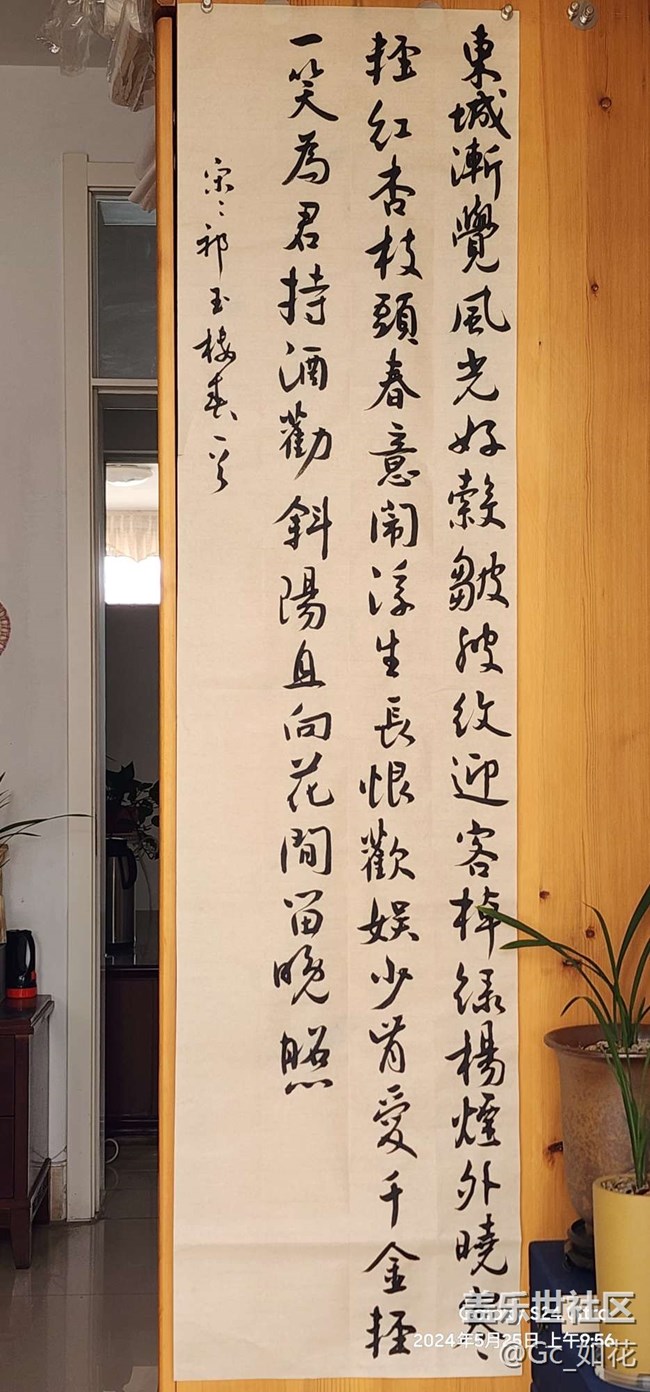 東城漸覺風光好縠皺波紋迎客棹綠楊煙外曉寒
輕紅杏枝頭春意鬧浮生長恨歡娛少肯愛千金輕
一笑為君持酒勸斜陽且向花間留晚照
宋〻祁玉樓春一首
盖乐世社区
2024年5月25日 上午9:56
@Gc_如花